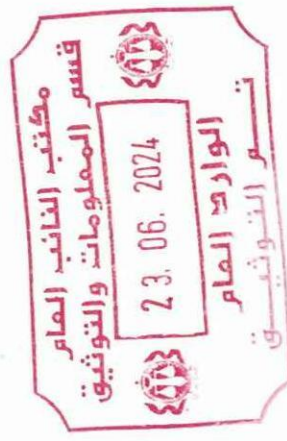 مكتب النائب العام
قسم المعلومات والتوثيق
23. 06. 2024
الوارد العام
تم التوثيق